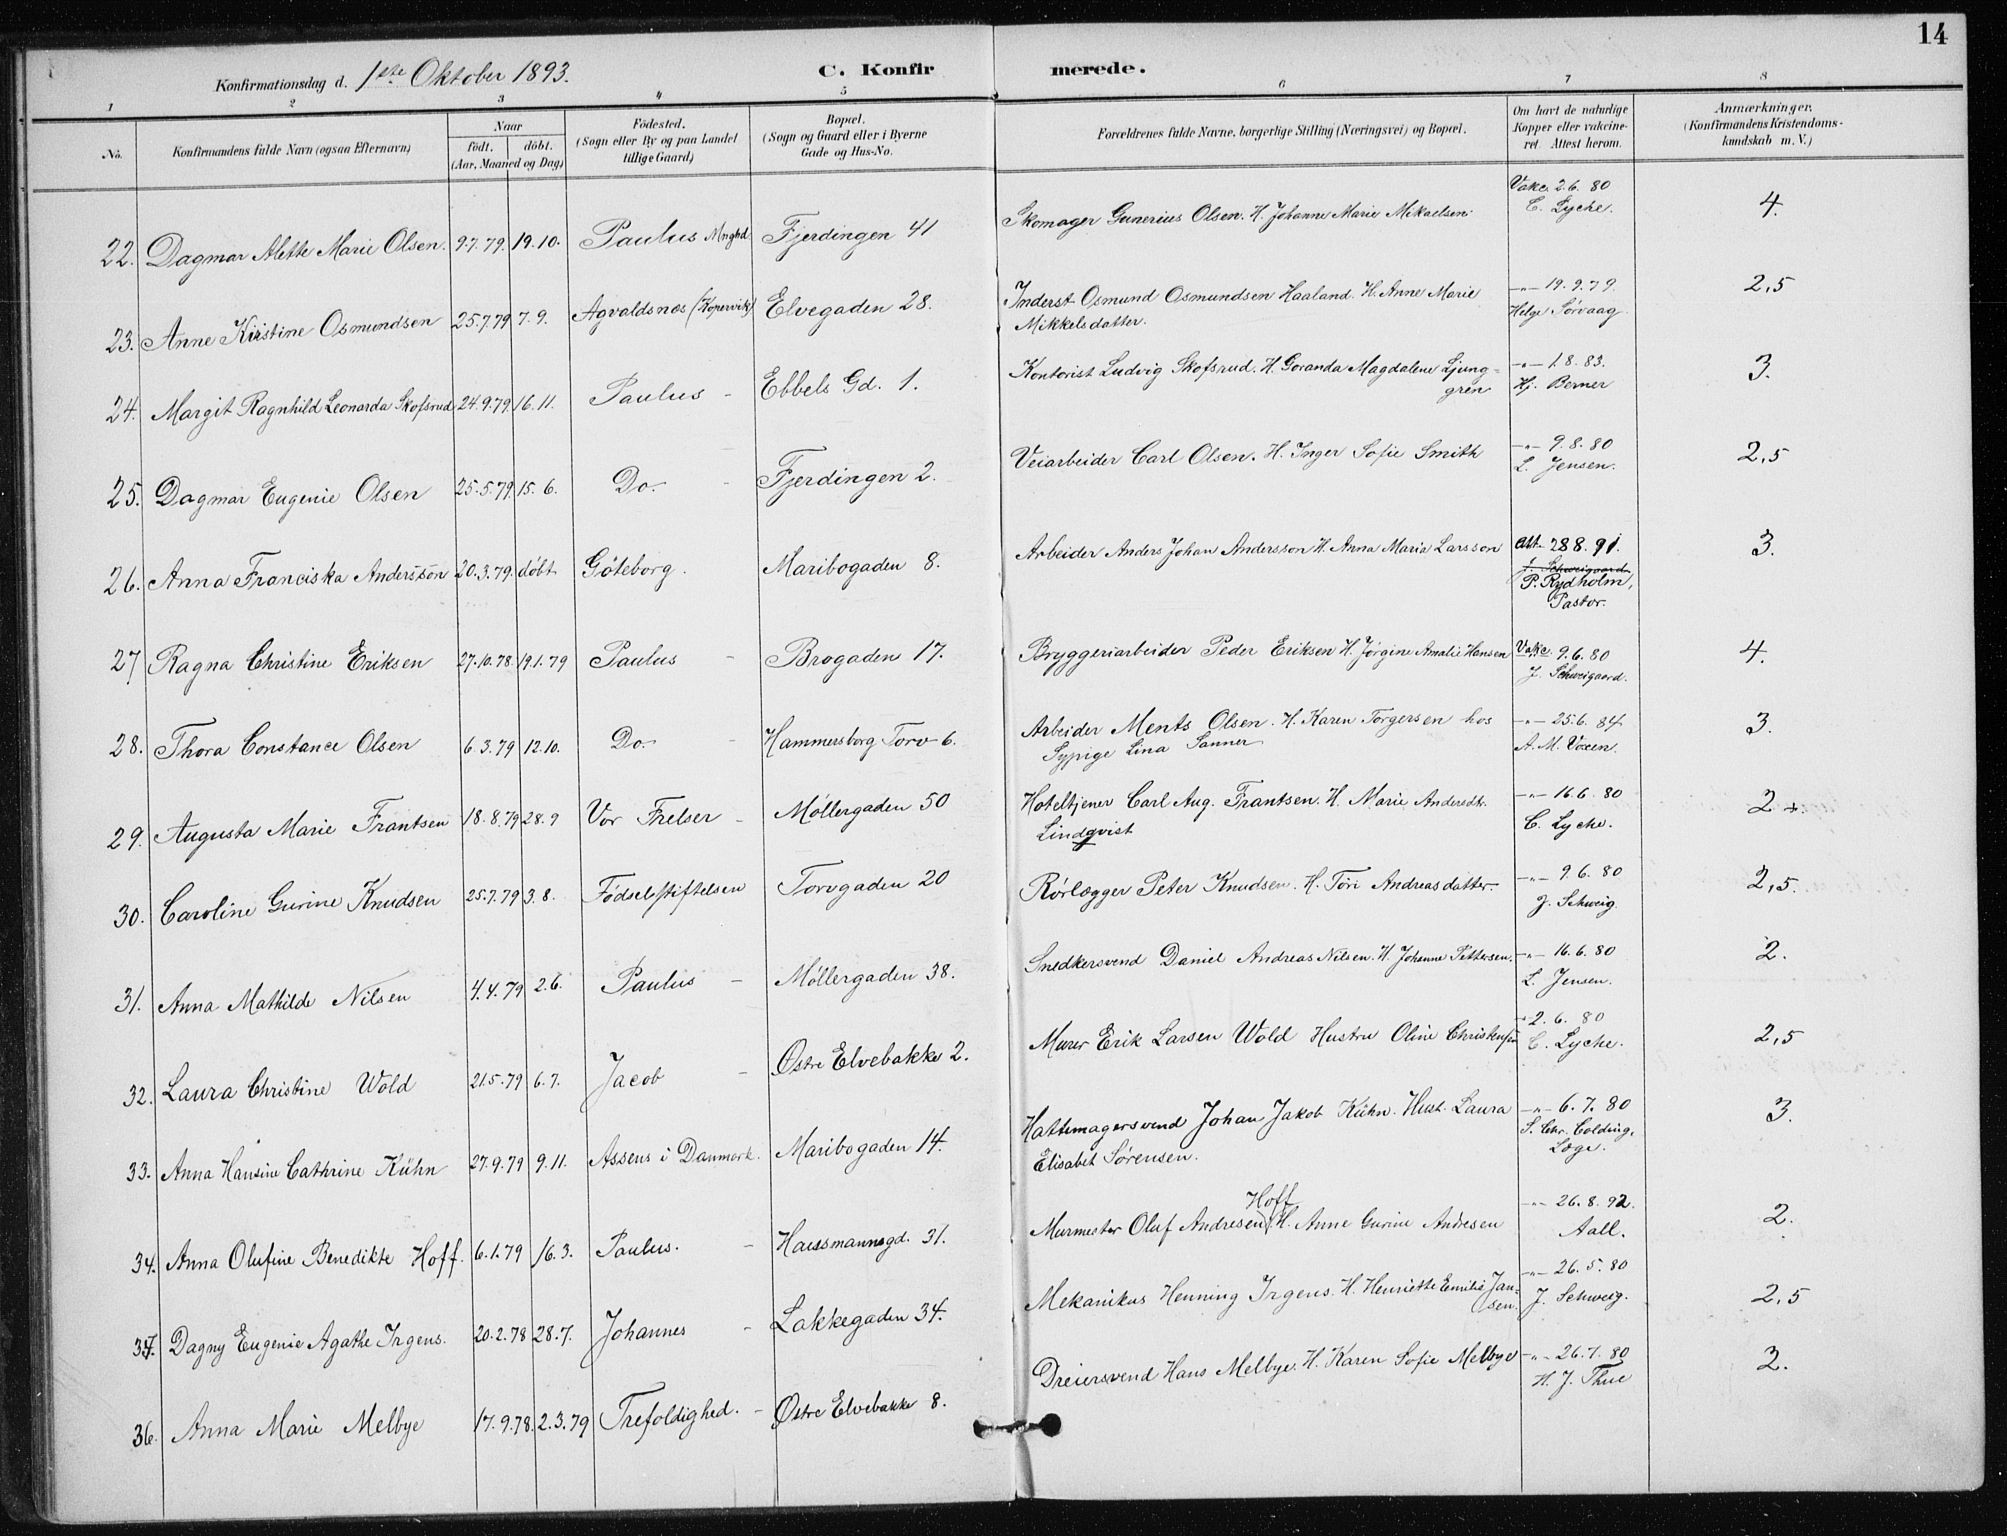 14
Konfirmationsdag d. 1ste Oktober 1893.
C. Konfirmerede.
1 2 3 4 5 6 7 8
No. Konfirmandens fulde Navn (ogsaa Efternavn) Naar födt. döbt. (Aar, Maaned og Dag) Födested. (Sogn eller By og paa Landet tillige Gaard) Bopæl. (Sogn og Gaard eller i Byerne Gade og Hus-No. Forældrenes fulde Navne, borgerlige Stilling (Næringsvei) og Bopæl. Om havt de naturlige Kopper eller vakcineret. Attest herom. Anmærkninger. (Konfirmandens Kristendomskundskab m. V.)
22. Dagmar Alette Marie Olsen. 9.7.79. 19.10. Paulus Mnghd Fjerdingen 41 Skomager Gunerius Olsen. H. Johanne Marie Mikaelsen. Vakc. 2.6.80 C. Lyche. 4.
23. Anne Kristine Osmundsen 25.7.79 7.9. Agvaldsnæs (Kopervik) Elvegaden 28. Inderst Osmund Osmundsen Haaland. H. Anne Marie
Mikkelsdatter. —"— 19.9.79. Helge Sörvaag 2,5
24. Margit Ragnhild Leonarda Skofsrud 24.9.79. 16.11. Paulus – Ebbels Gd. 1. Kontorist Ludvig Skofsrud. H. Goranda Magdalene Ljung-
gren —"— 1.8.83. Hj. Berner 3.
25. Dagmar Eugenie Olsen 25.5.79. 15.6. Do. – Fjerdingen 2. Veiarbeider Carl Olsen. H. Inger Sofie Smith —"— 9.8.80 L. Jensen. 2,5
26. Anna Franciska Andersson 20.3.79. döbt Göteborg. Maribogaden 8. Arbeider Anders Johan Andersson H. Anna Maria Larsson Att. 28 8.91. J. Schweigaard P. Rydholm, Pastor. 3.
27 Ragna Christine Eriksen 27.10.78. 19.1.79 Paulus – Brogaden 17. Bryggeriarbeider Peder Eriksen H. Jørgine Amalie Hansen Vakc. 9.6.80 J. Schweigaard. 4.
28. Thora Constance Olsen 6.3.79 12.10. Do. – Hammersborg Torv 6. Arbeider Ments Olsen. H. Karen Torgersen hos
Sypige Lina Sanner —"— 25.6.84. A. M. Voxen. 3.
29. Augusta Marie Frantsen 18.8.79 28.9 Vor Frelser – Møllergaden 50 Hoteltjener Carl Aug. Frantsen. H. Marie Andersdtr.
Lindqvist —"— 16.6.80 C. Lyche. 2 +.
30. Caroline Gurine Knudsen 25.7.79 3.8. Födselsstiftelsen Torvgaden 20 Rørlægger Peter Knudsen. H. Töri Andreasdatter —"— 9.6.80 J. Schweig. 2,5.
31. Anna Mathilde Nilsen 4.4.79 2.6. Paulus – Møllergaden 38. Snedkersvend Daniel Andreas Nilsen. H. Johanne Pettersen. —"— 16.6.80 L. Jensen. 2.
32. Laura Christine Wold 21.5.79 6.7. Jacob – Østre Elvebakke 2. Murer Erik Larsen Wold Hustru Oline Christensen —"— 2.6.80 C. Lyche. 2,5
33. Anna Hansine Cathrine Kühn 27.9.79 9.11. Assens i Danmark. Maribogaden 14. Hattemagersvend Johan Jakob Kühn. Hust. Laura
Elisabet Sørensen. —"— 6.7.80 S. Chr. Colding, Læge. 3.
34. Anna Olufine Benedikte Hoff. 6.1.79 16.3. Paulus. – Haussmannsgd. 31. Murmester Oluf Andresen Hoff H. Anne Gurine Andresen —"— 26.8.92. Aall. 2.
35. Dagny Eugenie Agathe Irgens. 20.2.78 28.7. Johannes – Lakkegaden 34. Mekanikus Henning Irgens. H. Henriette Emilie Jan-
sen. —"— 26.5.80 J. Schweig. 2,5
36. Anna Marie Melbye 17.9.78. 2.3.79 Trefoldighed. – Østre Elvebakke 8. Dreiersvend Hans Melbye. H. Karen Sofie Melbye —"— 26.7.80 H. J. Thue 3.